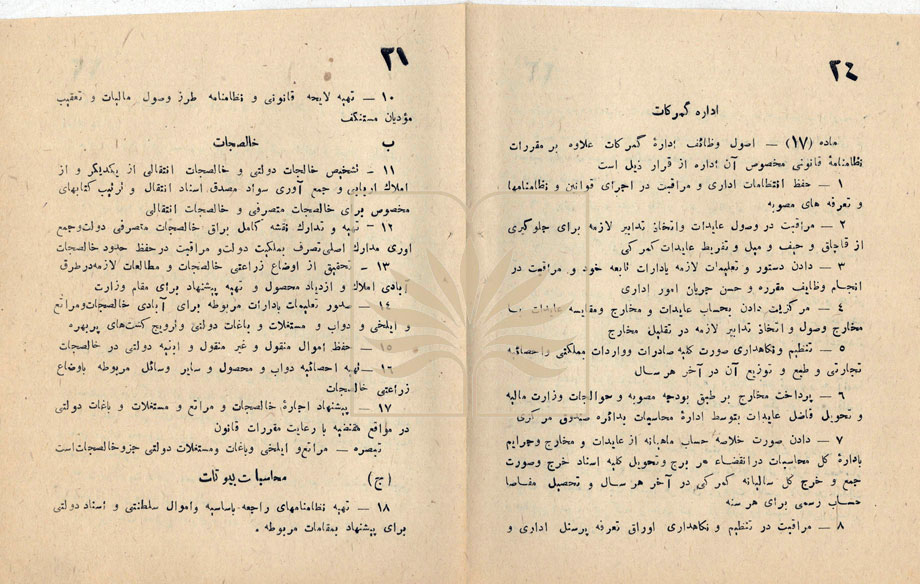 ۲۱
۱۰ — تهیه لایحه قانونی و نظامنامه طرز وصول مالیات و تعقیب
مؤدیان مستنکف
ب خالصجات
۱۱ — تشخیص خالجات دولتی و خالصجات انتقالی از یکدیگر و از
املاک اربابی و جمع آوری سواد مصدق اسناد انتقال و ترتیب کتابهای
مخصوص برای خالصجات متصرفی و خالصجات انتقالی
۱۲ — تهیه و تدارک نقشه کامل براق خالصجات متصرفی دولت وجمع
اوری مدارک اصلی تصرف بملکیت دولت و مراقبت در حفظ حدود خالصجات
۱۳ — تحقیق از اوضاع زراعتی خالصجات و مطالعات لازمه در طرق
آبادی املاک و ازدیاد محصول و تهیه پیشنهاد برای مقام وزارت
۱۴ — صدور تعلیمات بادارات مربوطه برای آبادی خالصجات ومراتع
و ایلخی و دواب و مستغلات و باغات دولتی و ترویج کشت‌های پربهره
۱۵ — حفظ اموال منقول و غیر منقول و ابنیه دولتی در خالصجات
۱۶ — تهیه احصائیه دواب و محصول و سایر وسائل مربوطه باوضاع
زراعتی خالصجات
۱۷ — پیشنهاد اجارهٔ خالصجات و مراتع و مستغلات و باغات دولتی
در مواقع مقتضیه با رعایت مقررات قانون
تبصره — مراتع و ایلخی وباغات ومستغلات دولتی جزو خالصجات است
(ج) محاسبات بیوتات
۱۸ — تهیه نظامنامهای راجعه باساسیه واموال سلطنتی و اسناد دولتی
برای پیشنهاد بمقامات مربوطه .
۲٤
اداره گمرکات
ماده (۱۷) — اصول وظائف ادارهٔ گمرکات علاوه بر مقررات
نظامنامهٔ قانونی مخصوص آن اداره از قرار ذیل است
۱ — حفظ انتظامات اداری و مراقبت در اجرای قوانین و نظامنامها
و تعرفه های مصوبه
۲ — مراقبت در وصول عایدات و اتخاذ تدابیر لازمه برای جلوگیری
از قاچاق و حیف و میل و تفریط عایدات گمرکی
۳ — دادن دستور و تعلیمات لازمه بادارات تابعه خود و مراقبت در
انجام وظایف مقرره و حسن جریان امور اداری
٤ — مرکزیت دادن بحساب عایدات و مخارج ومقایسه عایدات بــا
مخارج وصول و اتخاذ تدابیر لازمه در تقلیل مخارج
۵ — تنظیم ونگاهداری صورت کلیه صادرات وواردات مملکتی واحصائیه
تجارتی و طبع و توزیع آن در آخر هر سال
۶ — پرداخت مخارج بر طبق بودجه مصوبه و حوالجات وزارت مالیه
و تحویل فاضل عایدات بتوسط ادارهٔ محاسبات بدائره صندوق مرکزی
۷ — دادن صورت خلاصه حساب ماهیانه از عایدات و مخارج وجرایم
بادارهٔ کل محاسبات در انقضاء هر برج وتحویل کلیه اسناد خرج وصورت
جمع و خرج کل سالیانه گمرکی در آخر هر سال و تحصیل مفاصا
حساب رسمی برای هر سنه
۸ — مراقبت در تنظیم و نگاهداری اوراق تعرفه پرسنل اداری و